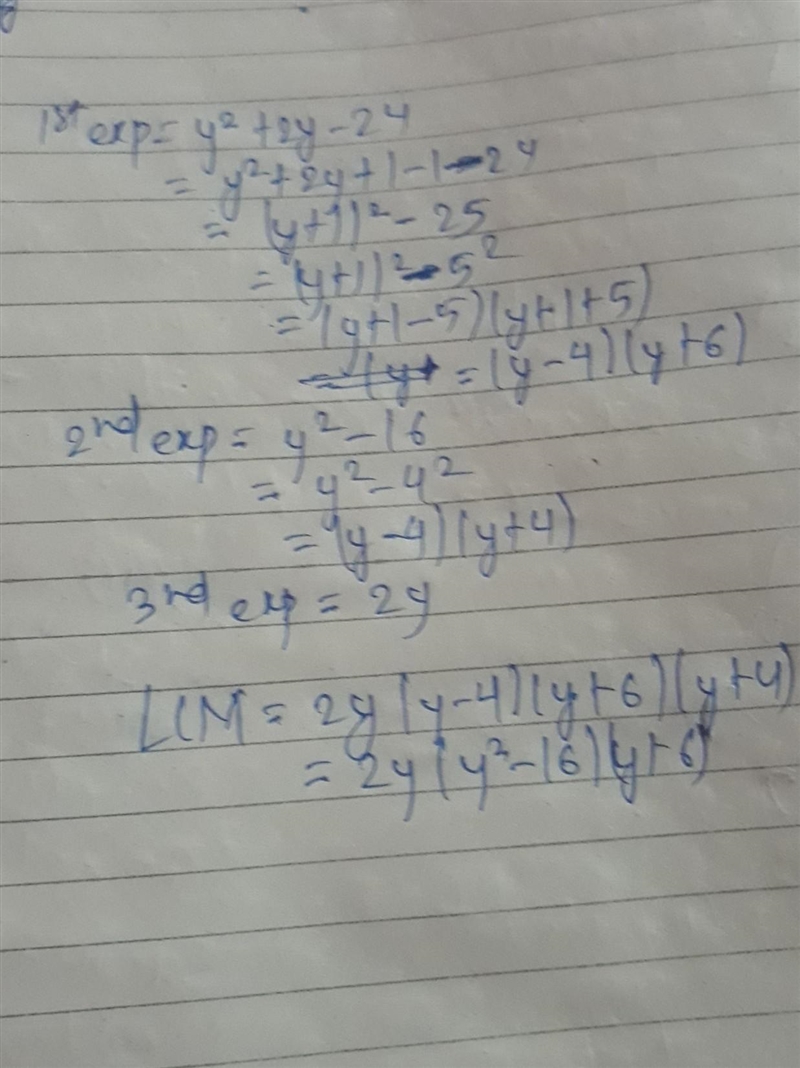 1st exp = y² + 2y - 24
= y² + 2y + 1 - 1 - 24
= (y+1)² - 25
= (y+1)² - 5²
= (y+1-5)(y+1+5)
= (y-4)(y+6)
2nd exp = y² - 16
= y² - 4²
= (y-4)(y+4)
3rd exp = 2y
LCM = 2y(y-4)(y+6)(y+4)
= 2y(y²-16)(y+6)